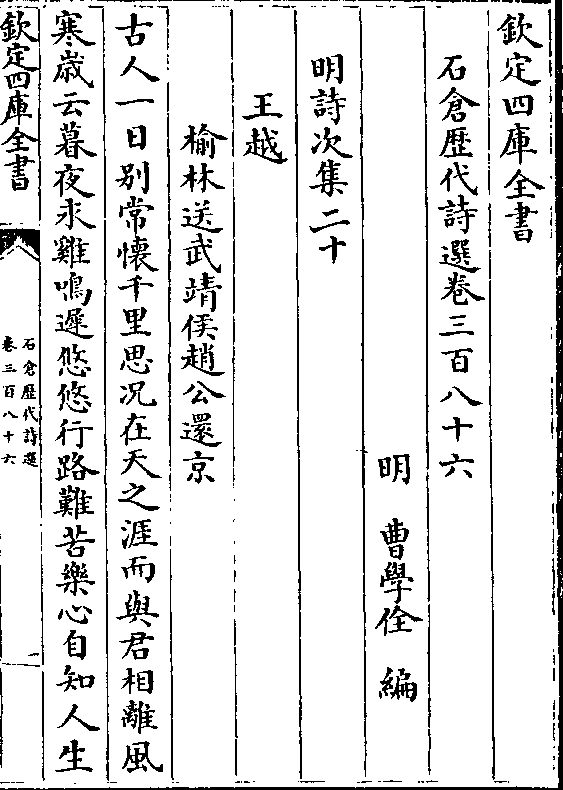 欽定四庫全書
石倉歷代詩選卷三百八十六
明 曹學佺 編
明詩次集二十
王越
榆林送武靖侯趙公還京
古人一日别常懷千里思况在天之涯而與君相離風
寒歳云暮夜永雞鳴遲悠悠行路難苦樂心自知人生
欽定四庫全書
石倉歷代詩選
卷三百八十六
一